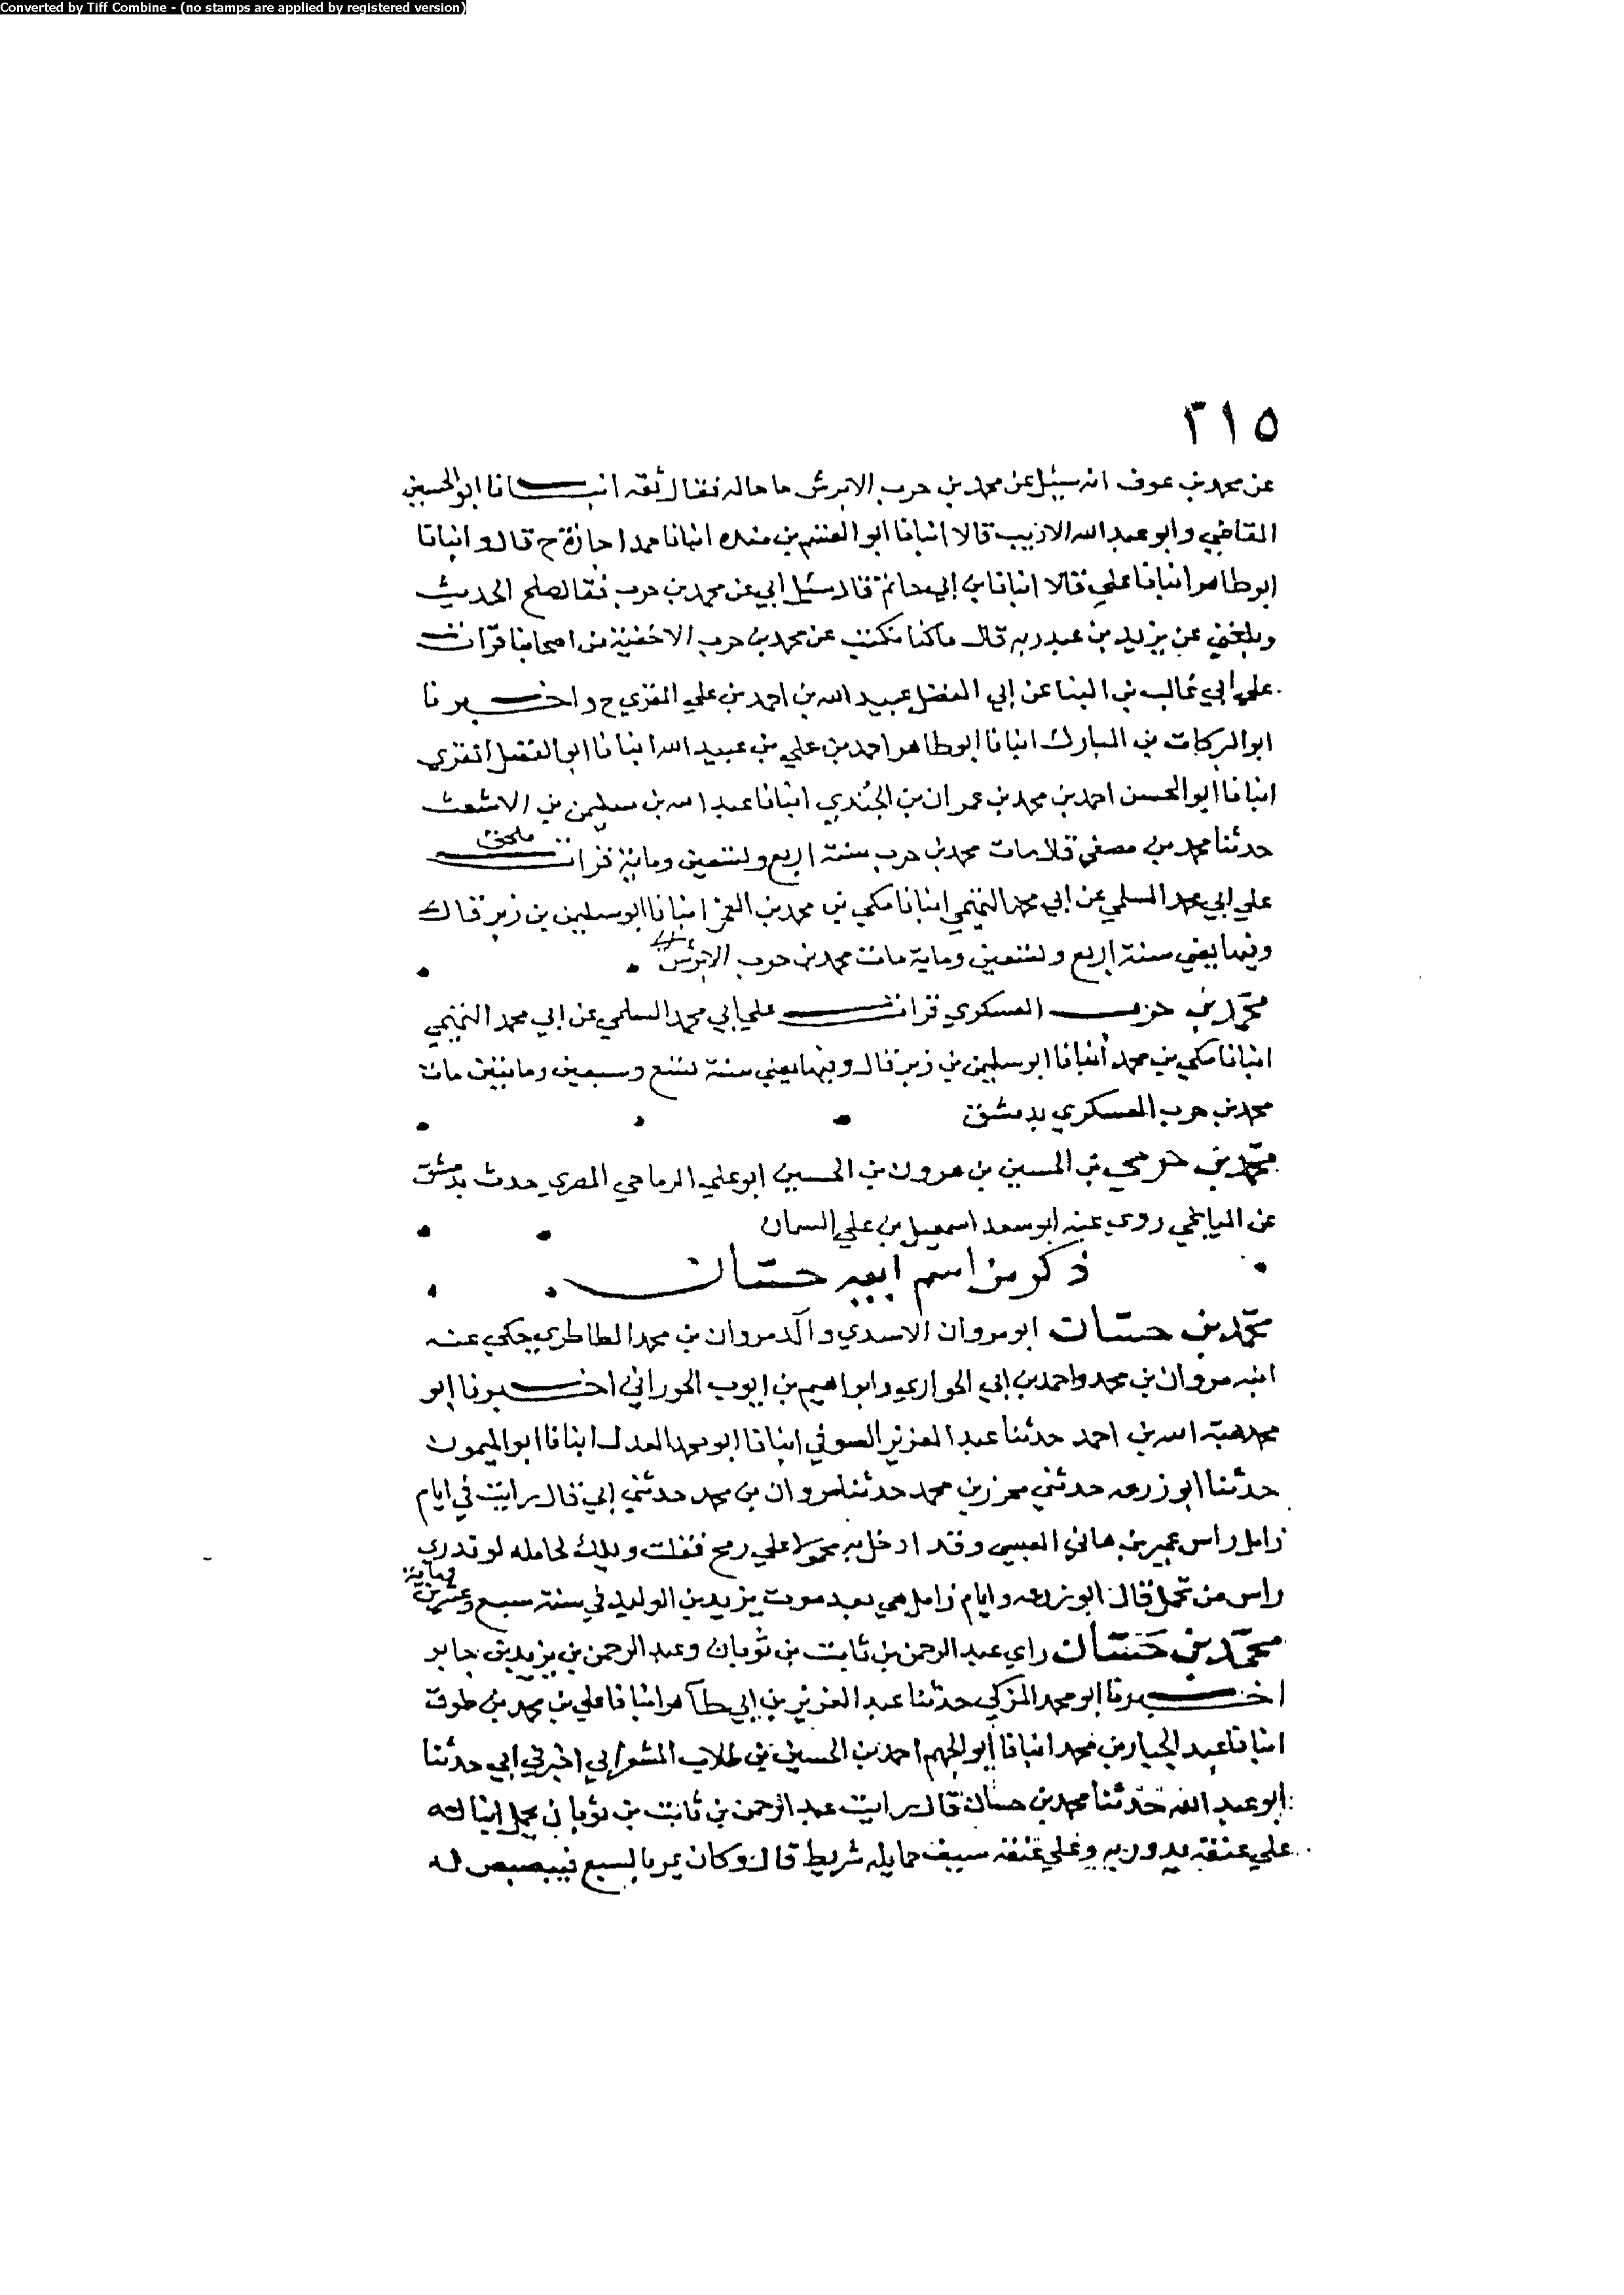 Converted by Tiff Combine - (no stamps are applied by registered version)
٣١٥
عن محمد بن عوف انه سئل عن محمد بن حرب الابرش ما حاله فقال ثقه انبـــانا ابو الحسين
القاضي وابو عبد الله الاديب قالا انبانا ابو القسم بن منده انبانا حمد اجازة ح قال وانبانا
ابو طاهر انبانا علي قالا انبانا بن ابي حاتم قال سئل ابي عن محمد بن حرب فقال صلح الحديث
وبلغني عن يزيد بن عبد ربه قال ما كنا نكتب عن محمد بن حرب الا خفية من اصحابنا قرات
علي ابي غالب بن البنا عن ابي الفضل عبيد الله بن احمد بن علي المقري ح واخبرنا
ابو البركات بن المبارك انبانا ابو طاهر احمد بن علي بن عبيد الله انبانا ابو الفضل المقري
انبانا ابو الحسن احمد بن محمد بن عمران بن الجندي انبانا عبد الله بن سليمن بن الاشعث
حدثنا محمد بن مصفي قال مات محمد بن حرب سنة اربع وتسعين وماية قرات ملحق
علي ابي محمد السلمي عن ابي محمد التميمي انبانا مكي بن محمد بن الغمر انبانا ابو سليمن بن زبر قال
وفيها يعني سنة اربع وتسعين وماية مات محمد بن حرب الابرش
محمد بن حرب العسكري قرات علي ابي محمد السلمي عن ابي محمد التميمي
انبانا مكي بن محمد انبانا ابو سليمن بن زبر قال وفيها يعني سنة تسع وسبعين وماتيين مات
محمد بن حرب العسكري بدمشق
محمد بن حرمي بن الحسين بن هرون بن الحسين ابو علي الرماحي المصري حدث بدمشق
عن الميانجي روي عنه ابو سعد اسمعيل بن علي السمان
ذكر من اسم ابيه حسان
محمد بن حسان ابو مروان الاسدي والد مروان بن محمد الطاطري حكي عنه
ابنه مروان بن محمد واحمد بن ابي الحواري وابراهيم بن ايوب الحوراني اخبرنا ابو
محمد هبة الله بن احمد حدثنا عبد العزيز الصوفي انبانا ابو محمد العدل انبانا ابو الميمون
حدثنا ابو زرعه حدثني محرز بن محمد حدثنا مروان بن محمد حدثني ابي قال رايت في ايام
زامل راس عمير بن هاني العبسي وقد ادخل به محمولا علي رمح فقلت ويلك لحامله لو تدري
راس من تحمل قال ابو زرعه وايام زامل هي بعد موت يزيد بن الوليد في سنة سبع وعشرين وماية
محمد بن حسان راي عبد الرحمن بن ثابت بن ثوبان وعبد الرحمن بن يزيد بن جابر
اخبرنا ابو محمد المزكي حدثنا عبد العزيز بن ابي طاهر انبانا علي بن محمد بن طوق
انبانا عبد الجبار بن محمد انبانا ابو الجهم احمد بن الحسين بن طلاب المشغراني اخبرني ابي حدثنا
ابو عبد الله حدثنا محمد بن حسان قال رايت عبد الرحمن بن ثابت بن ثوبان يحمل ابنا له
علي عنقه يدور به وعلي عنقه سيف حمايله شريط قال وكان يمر بالسبع فيبصبص له